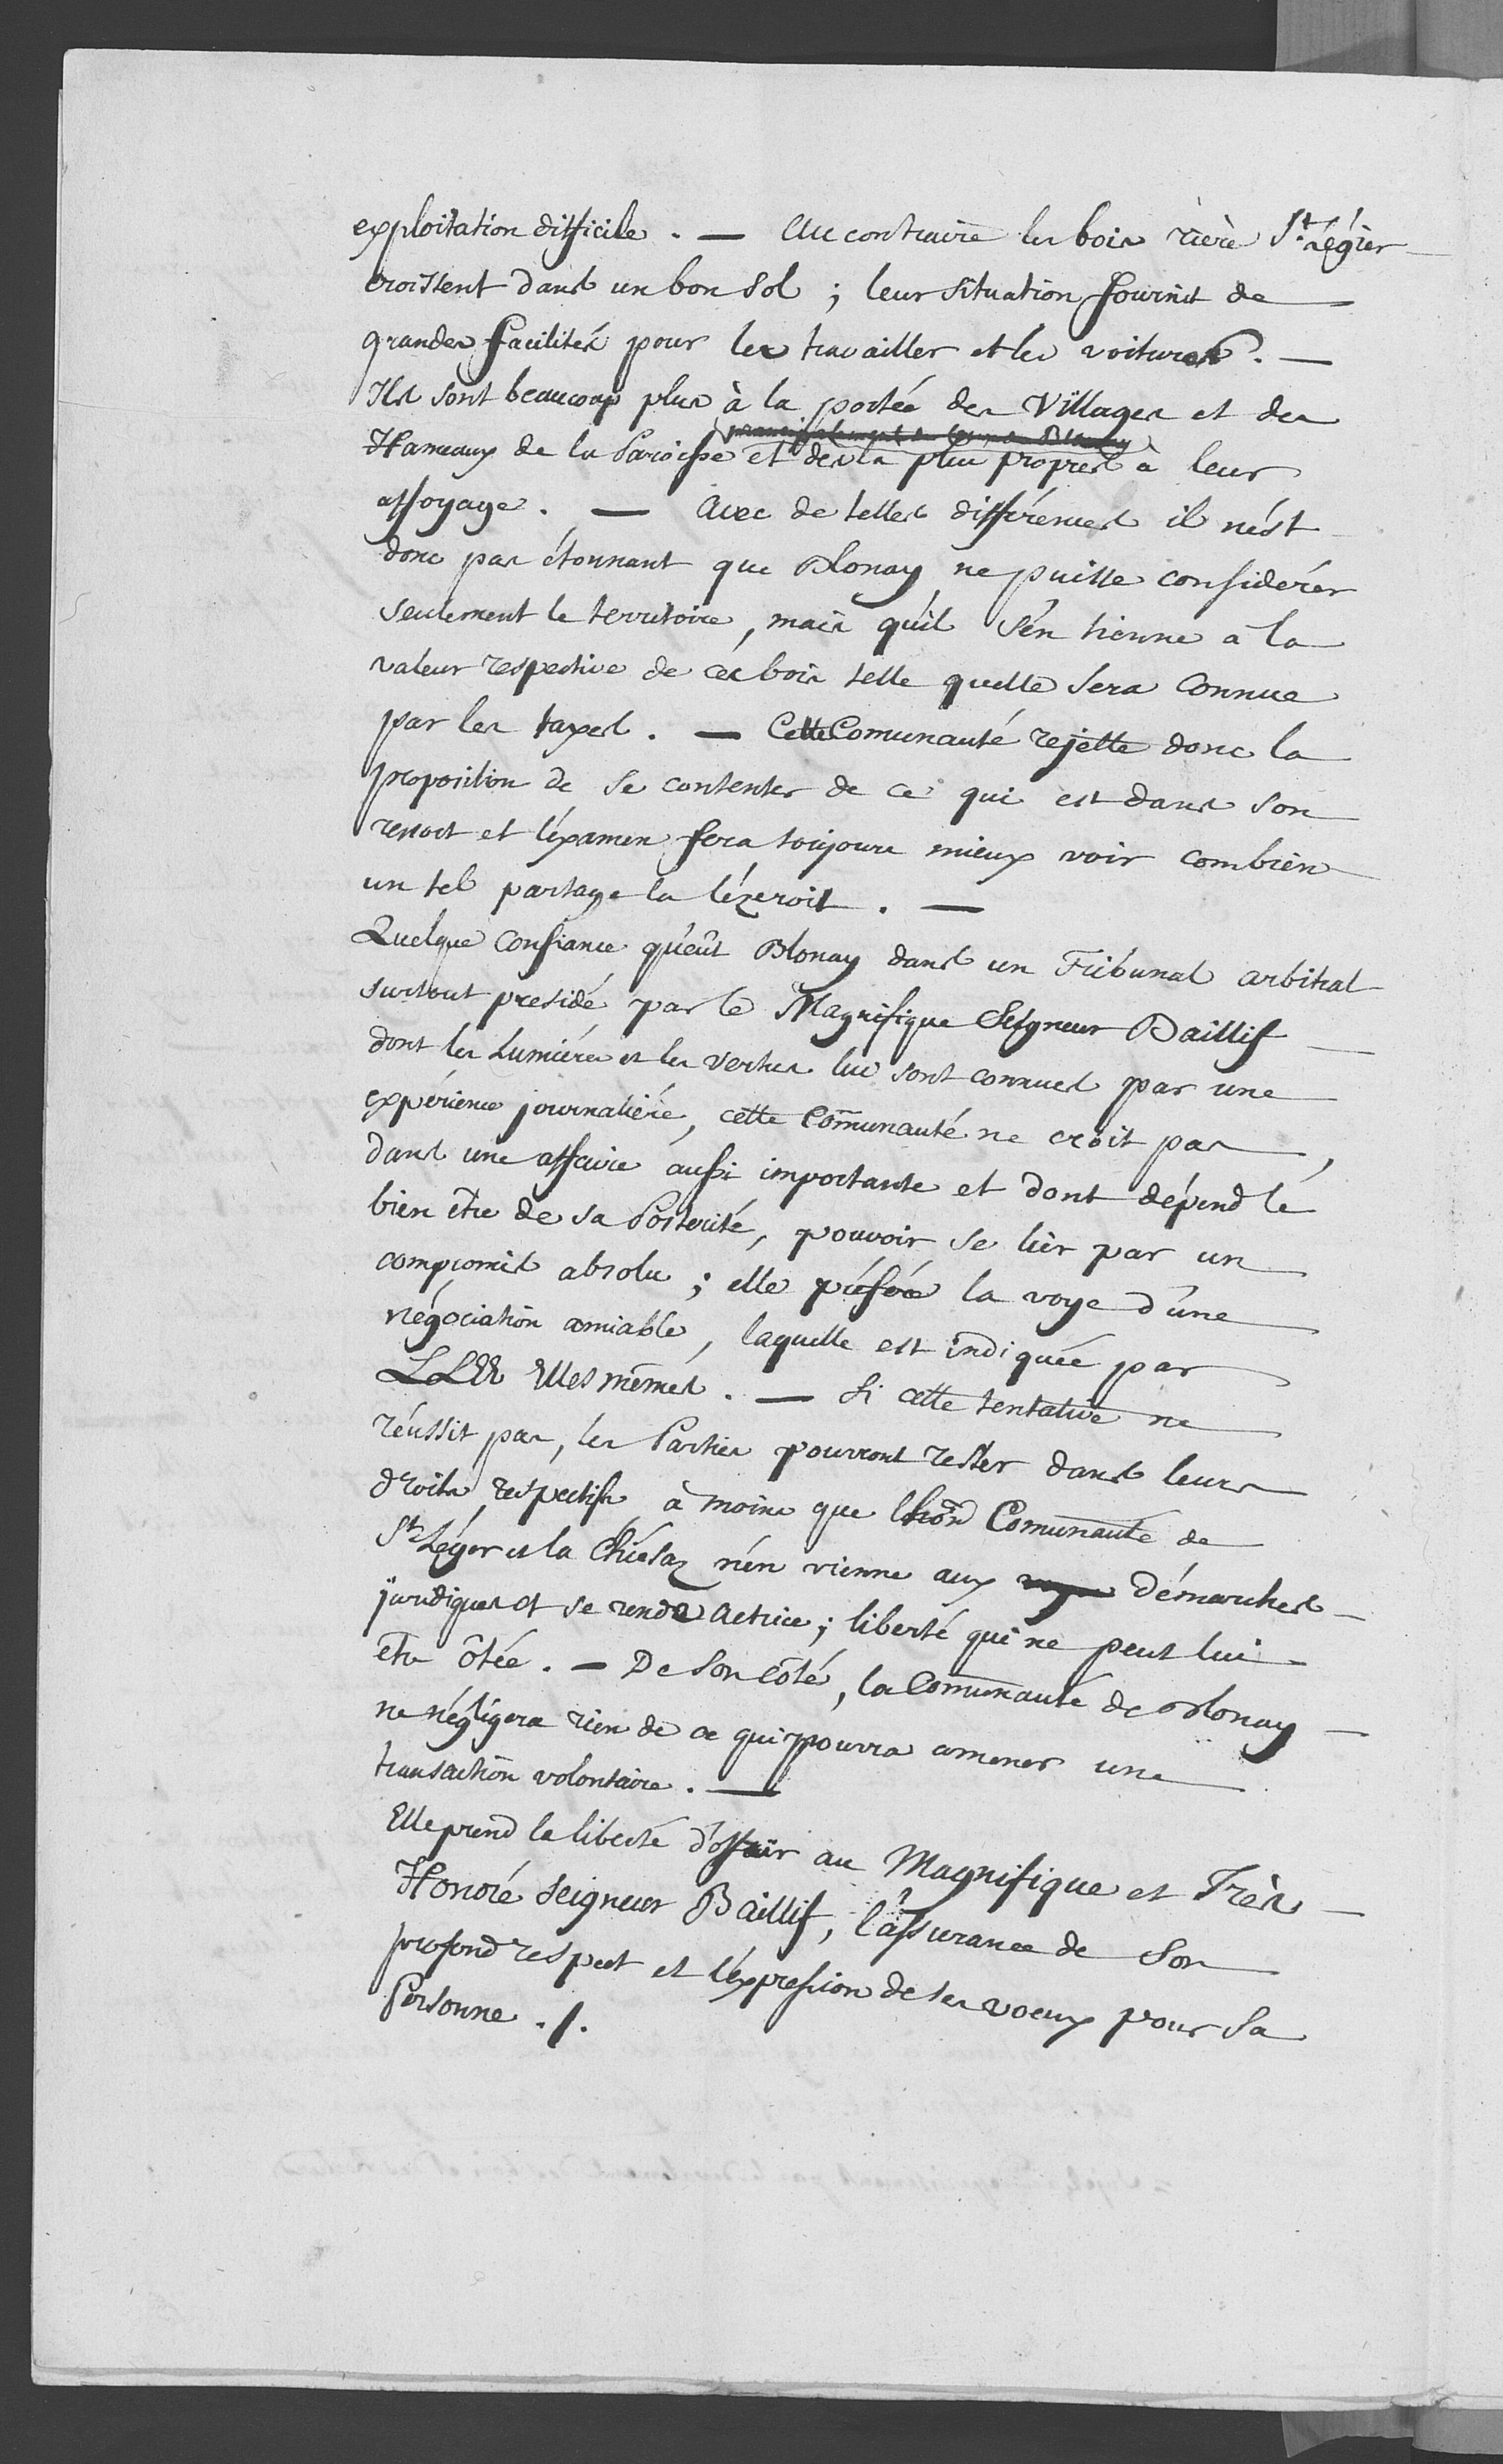 exploitation difficile. — Au contraire les bois rière St. Légier
croissent dans un bon sol ; leur situation fournit de
grandes facilités pour les travailler et les voiturer. —
Ils sont beaucoup plus à la portée des Villages et des
Hameaux de la Paroisse et de là plus propres à leur
affoyage. — Avec de telles différences il n'est
donc pas étonnant que Blonay ne puisse considérer
seulement le territoire, mais qu'il s'en tienne à la
valeur respective de ces bois telle quelle sera connue
par les taxes. — Cette Comunauté rejette donc la
proposition de se contenter de ce qui est dans son
ressort et l'éxamen fera toujours mieux voir combien
un tel partage la lézeroit. —
Quelque confiance qu'eût Blonay dans un Tribunal arbitral
surtout presidé par le Magnifique Seigneur Baillif
dont les Lumières et les vertus lui sont connues par une
expérience journalière, cette Comunauté ne croit pas,
dans une affaire aussi importante et dont dépend le
bien être de sa Posterité, pouvoir se lier par un
compromis absolu ; elle préfère la voye d'une
négociation amiable, laquelle est indiquée par
LLEE Elles mêmes. — Si cette tentative ne
réussit pas, les Parties pourront rester dans leurs
droits respectifs à moins que l'hon. Comunauté de
St. Léger et la Chiésaz n'en vienne aux démarches
juridiques et se rende actrice ; liberté qui ne peut lui
être ôtée. — De son côté, la Comunauté de Blonay
ne négligera rien de ce qui pourra amener une
transaction volontaire. —
Elle prend la liberté d'offrir au Magnifique et Très
Honoré Seigneur Baillif, l'assurance de son
profond respect et l'expression de ses voeux pour sa
Personne ./.